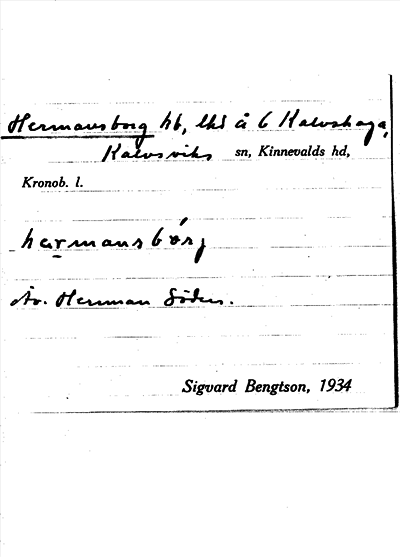 Hermansborg hb, lhd å 6 Kalvshaga,
Kalvsviks sn, Kinnevalds hd,
Kronob. l.
hermansbórj
Herman Söder.
Sigvard Bengtson, 1934